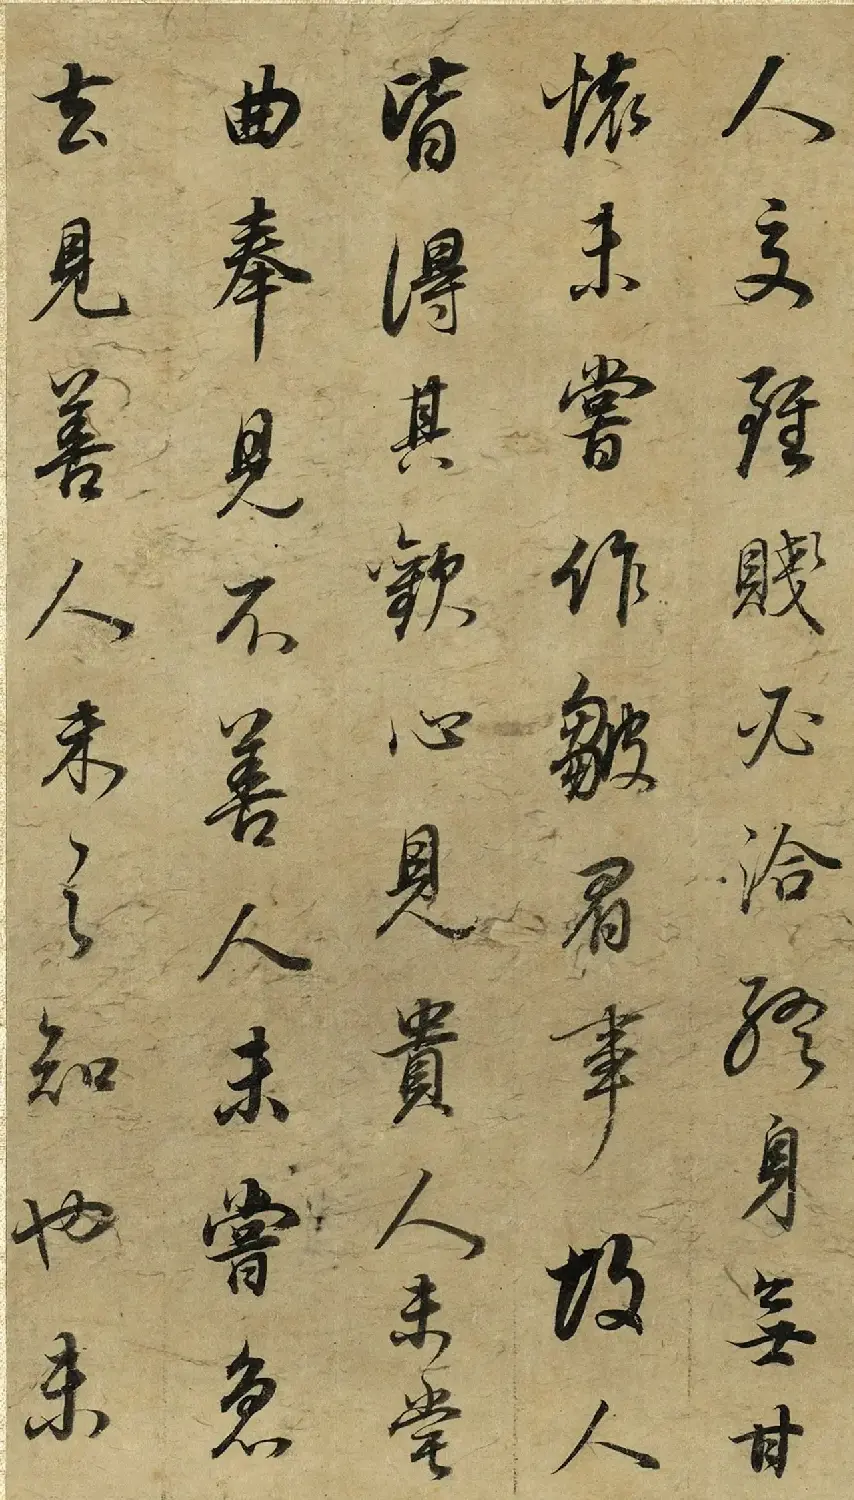 人交雖賤必洽終身無甘
懷未嘗作皺眉事故人
皆得其歡心見貴人未嘗
曲奉見不善人未嘗急
去見善人未之知也未